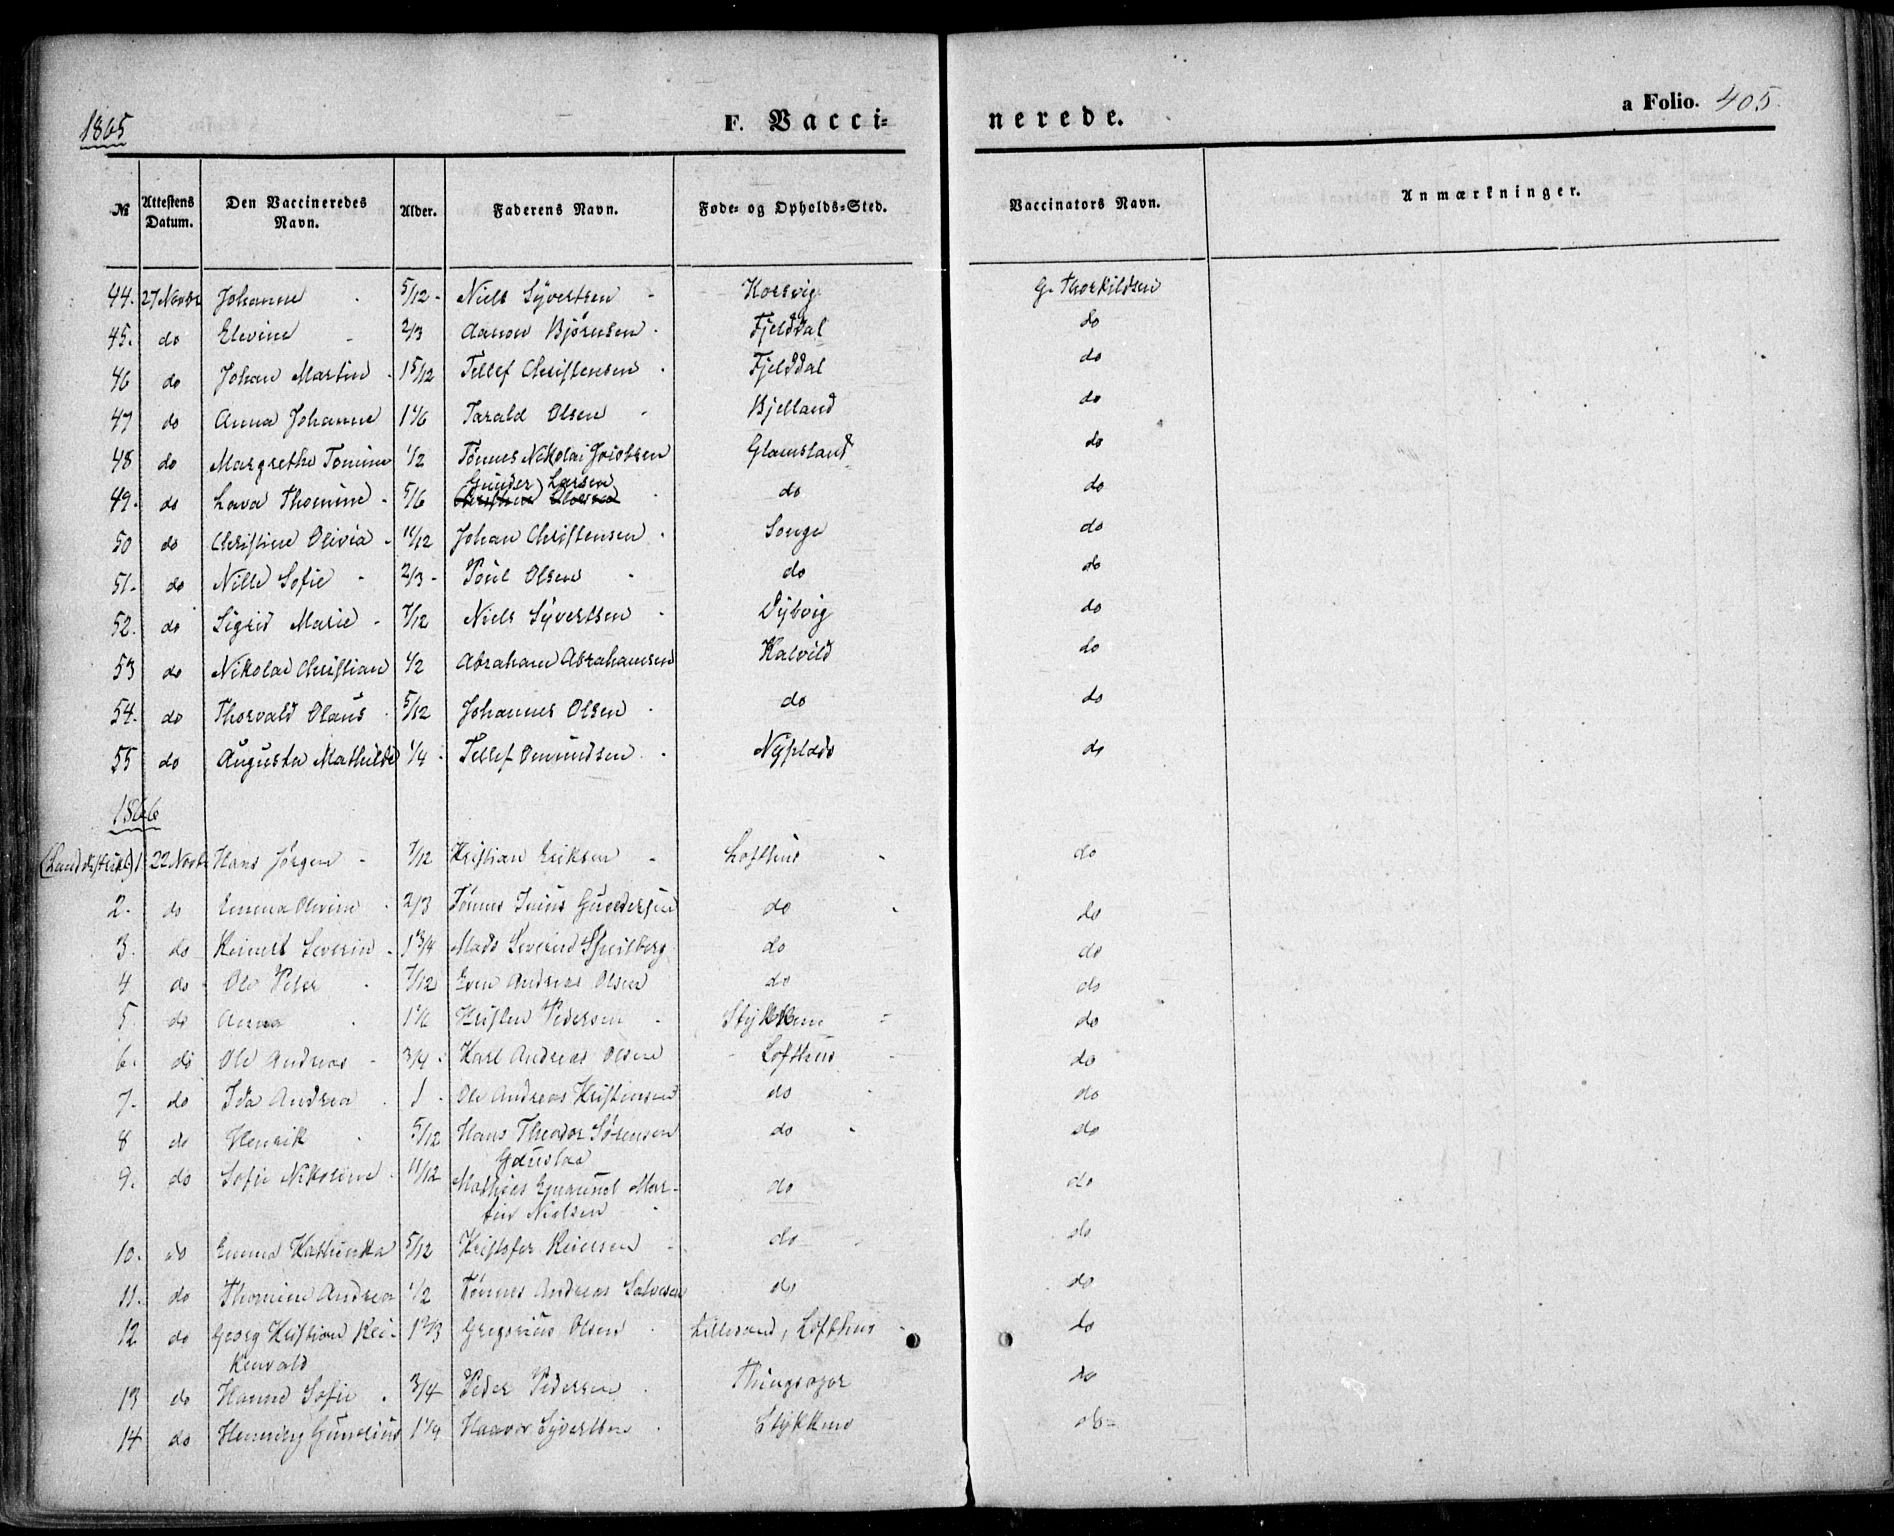 1865 F. Vacci= nerede. a Folio. 405.
№ Attestens Datum. Den Vaccineredes Navn. Alder. Faderens Navn. Føde- og Opholds-Sted. Vaccinators Navn. Anmærkninger.
44. 27 Novbr Johanne 5/12 Niels Syvertsen Korsvig G. Thorkildsen
45. do Elevine 2/3 Aanon Bjørnsen Fjelddal do
46 do Johan Martin 1 5/12 Tellef Christensen Fjelddal do
47 do Anna Johanne 1 1/6 Tarald Olsen Bjelland do
48 do Margrethe Tomine 1/2 Tønnes Nikolai Jacobsen Glamsland do
Gunder Larsen
49. do Lava Thomine 5/6 do do
50 do Christine Olivia 11/12 Johan Christensen Songe do
51. do Nille Sofie 2/3 Poul Olsen do do
52. do Sigrid Marie 7/12 Niels Syvertsen Dybvig do
53 do Nikolai Christian 1/2 Abraham Abrahamsen Kalvild do
54. do Thorvald Olaus 5/12 Johannes Olsen do do
55 do Augusta Mathilde 1/4 Tellef Omundsen Nyplads do
1866
(Landdistrikt) 1. 22 Novb. Hans Jørgen 7/12 Kristian Eriksen Lofthus do
2. do Emma Olivine 2/3 Tønnes Junius Gundersen do do
3. do Reinert Severin 1 3/4 Mads Severin do do
4 do Ole Peter 7/12 Even Andreas Olsen do do
5 do Anna 1 1/6 Kristen Pedersen Stykkene do
6. do Ole Andreas 3/4 Karl Andreas Olsen Lofthus do
7. do Ida Andrea 1 Ole Andreas Kristensen do do
8 do Henrik 5/12 Hans Theodor Sørensen do do
Gauslaa
9. do Sofie Nikoline 11/12 Mathias Edmund Mar- do do
tin Nielsen
10. do Emma Kathinka 5/12 Kristofer Reiersen do do
11. do Thomine Andrea 1/2 Tønnes Andreas Salvesen do do
12 do Georg Kristian Rei- 1 2/3 Gregorius Olsen Lillesand, Lofthus do
kenvald
13 do Hanne Sofie 3/4 Peder Pedersen Thingsager do
14 do Henning Gunelius 1 1/4 Haavor Syvertsen Stykkene do